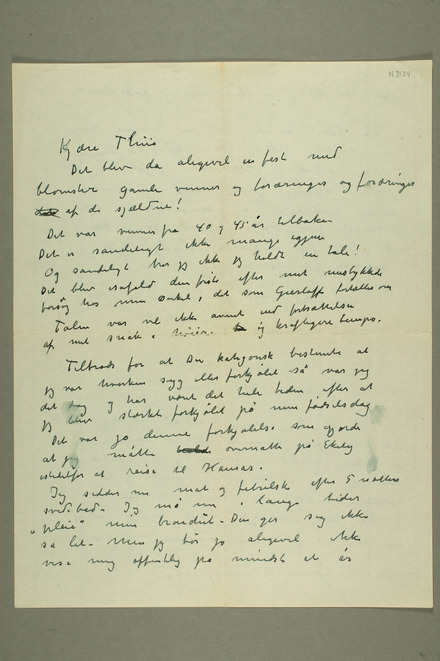 N 3124
Kjære Thiis
Det blev da aligevel en fest med
blomster gamle venner og foræringer og foræringer
af de sjeldne!
Det var venner fra 40 og 45 år tilbake
Det er sandelig ikke mange igjen
Og sandeligt tror jeg ikke jeg holdt en tale!
Det blev isåfald den første efter mit mislykkede
forsøg hos min Onkel, det som Gierløff fortæller om
Talen var vel ikke annet end fortsættelse
af mit snak i høiere og kraftigere tempo.
Tiltrods for at Du kategorisk bestemte at
jeg var hverken syg eller forkjølet så var jeg
det dog og har været det hele tiden efter at
jeg blev stærkt forkjølet på min fødselsdag
Det var jo denne forkjølelse som gjorde
at jeg måtte overnatte på Ekely
istedetfor at reise til Hamar.
Jeg sidder nu mat og febrilsk efter 5 nætters
svedbad. Jeg må nu i lange tider
„pleie" min bronchit. Den ger sig ikke
så let. Men jeg bør jo aligevel ikke
vise mig offentlig på mindst et år